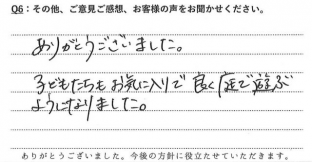 Q6：その他、ご意見ご感想、お客様の声をお聞かせください。
ありがとうございました。
子どもたちもお気に入りで良く庭で遊ぶ
ようになりました。
ありがとうございました。今後の方針に役立たせていただきます。